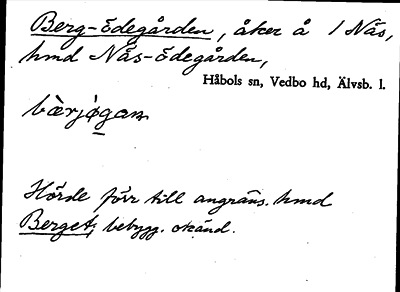 Berg-ödegården, åker å 1 Nås,
hmd Nås-ödegården,
Håbols sn, Vedbo hd, Älvsb. l.
bærjøgan
Hörde förr till angräns. hmd
Berget, bebygg. okänd.